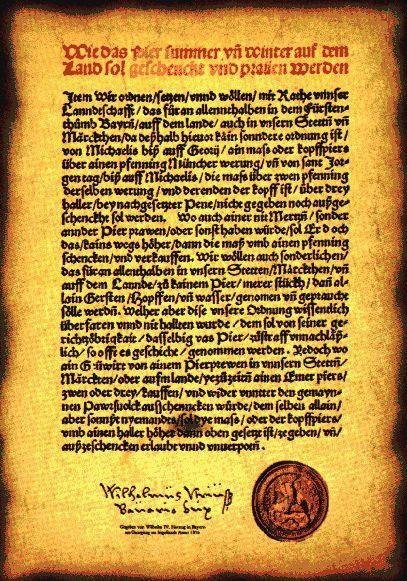 Wie das Pier summer vñ winter auf dem
Land sol geschenckt vnd prauen werden
Item Wir ordnen/setzen/vnnd wöllen/mit Rathe vnnser
Lanndtschafft/das füran allennthalben in dem Fürsten-
thůmb Bayrñ/auff dem lande/auch in vnsern Stettñ vñ
Märckthen/da deßhalb hieuor kain sonndere ordnung ist/
von Michaelis biß auff Georij/ain mass oder kopffpiers
über ainen pfenning Müncher werung/vñ von sant Jor-
gen tag/biß auff Michaelis/die mass über zwen pfenning
derselben werung/vnd derenden der kopff ist/über drey
haller/bey nachgesetzter Pene/nicht gegeben noch außge-
schenckht sol werden. Wo auch ainer nit Mertzñ/sonder
annder Pier prawen/oder sonst haben würde/sol Er doch
das/kains wegs höher/dann die maß vmb ainen pfenning
schencken/vnd verkauffen. Wir wöllen auch sonderlichen/
das füran allenthalben in vnsern Stetten/Märckthen/vñ
auff dem Lannde/zů kainem Pier/merer stückh/dañ al-
lain Gersten/Hopffen/vñ wasser/genomen vñ gepraucht
sölle werdñ. Welher aber dise vnsere Ordnung wissendlich
überfaren vnnd nit hallten wurde/dem sol von seiner ge-
richtzöbrigkait/dasselbig vas Pier/zůstraff vnnachläß-
lich/so offt es geschicht/genommen werden. Jedoch wo
ain Gůwirt von ainem Pierprewen in vnnsern Stettñ/
Märckten/oder aufm lande/yezůzeitñ ainen Emer piers/
zwen oder drey/kauffen/vnd wider vnnter den gemayn-
nen Pawrsuolck ausschenncken würde/dem selben allain/
aber sonnst nyemandts/sol dye mass/oder der kopffpiers/
vmb ainen haller höher dann oben gesetzt ist/ze geben/vñ/
außzeschencken erlaubt vnnd vnuerpotñ.
Gegeben von Wilhelm IV. Herzog in Bayern
am Georgitag zu Ingolstadt Anno 1516